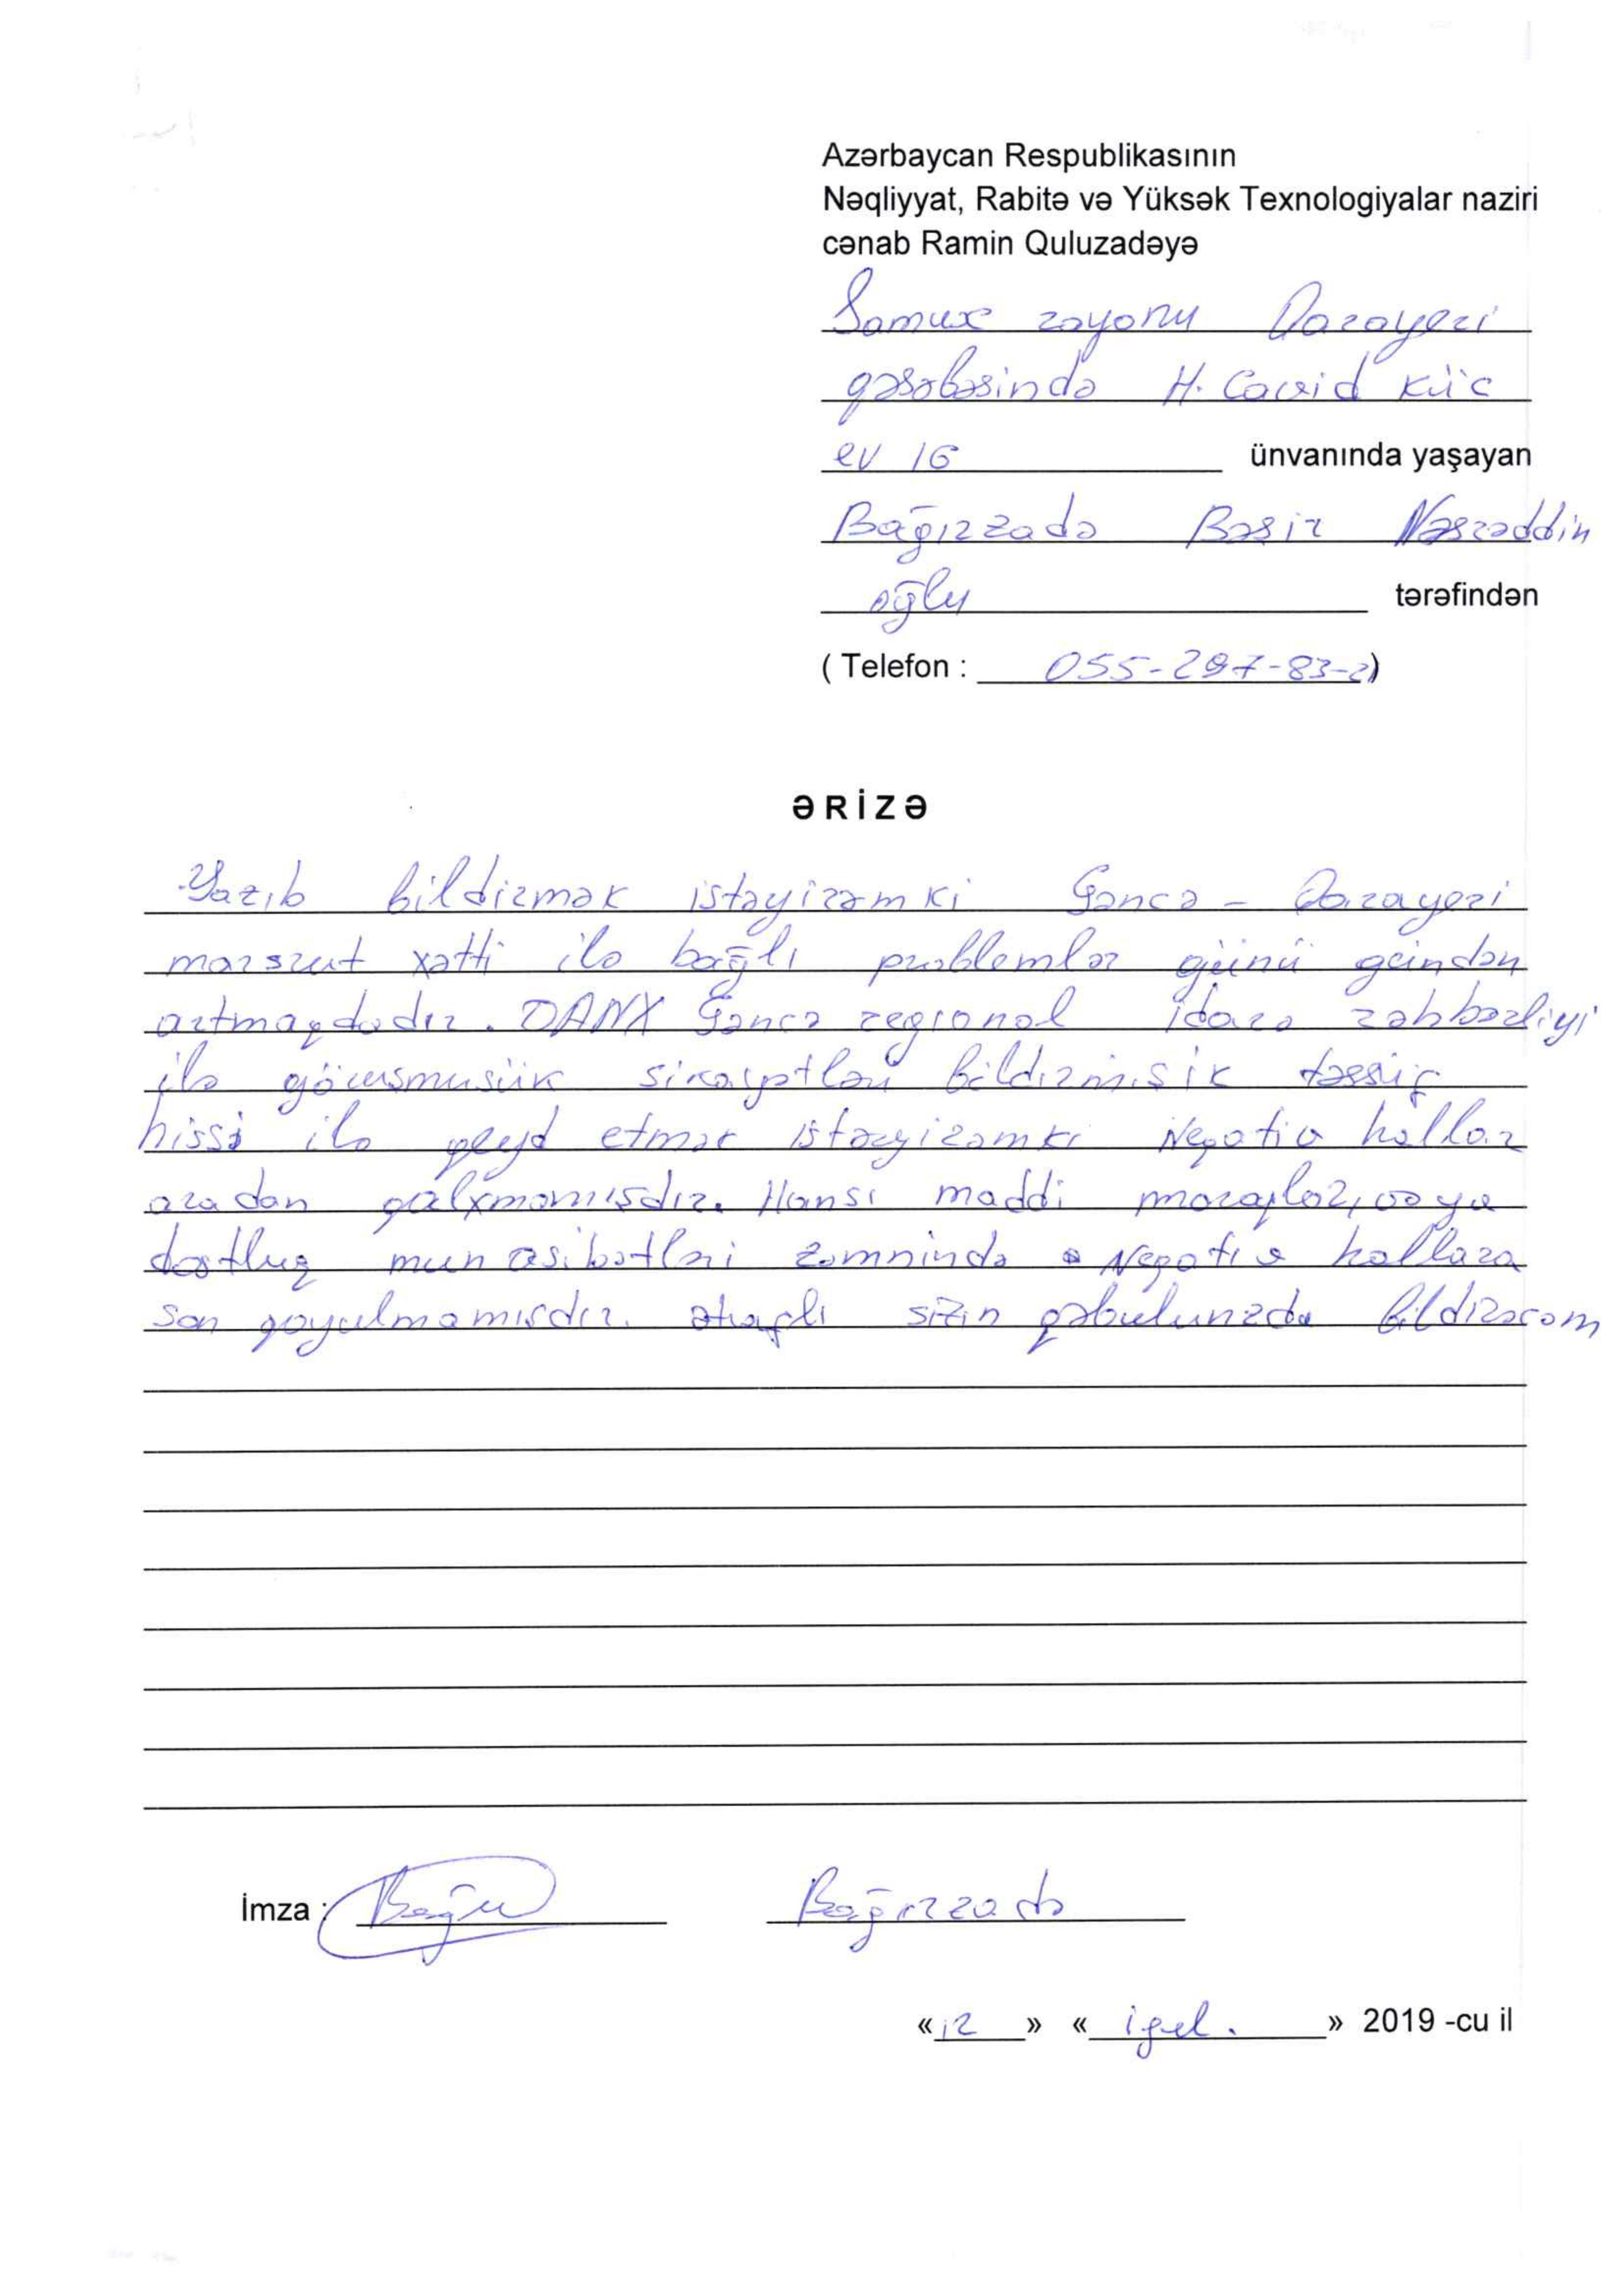 Azərbaycan Respublikasının
Nəqliyyat, Rabitə və Yüksək Texnologiyalar naziri
cənab Ramin Quluzadəyə
Samux rayonu Qarayeri
qəsəbəsində H. Cavid küc
ev 16 ünvanında yaşayan
Bağırzadə Bəşir Nəsrəddin
oğlu tərəfindən
( Telefon : 055-297-83-21)
ƏRİZƏ
Yazıb bildirmək istəyirəmki Gəncə - Qarayeri
marsrut xətti ilə bağlı problemlər günü gündən
artmaqdadır. DANX Gəncə regional idarə rəhbərliyi
ilə görüsmüsük sikayətləri bildirmisik təssüf
hissi ilə qeyd etmək istəyirəmki Negativ hallar
aradan qalxmamısdır. Hansı maddi maraqlar, və ya
dostluq munasibətləri zəmnində Negativ hallara
son qoyulmamısdır. ətraflı sizin qəbulunuzda bildirəcəm
İmza : Bağırzadə
« 12 » « iyul. » 2019 -cu il